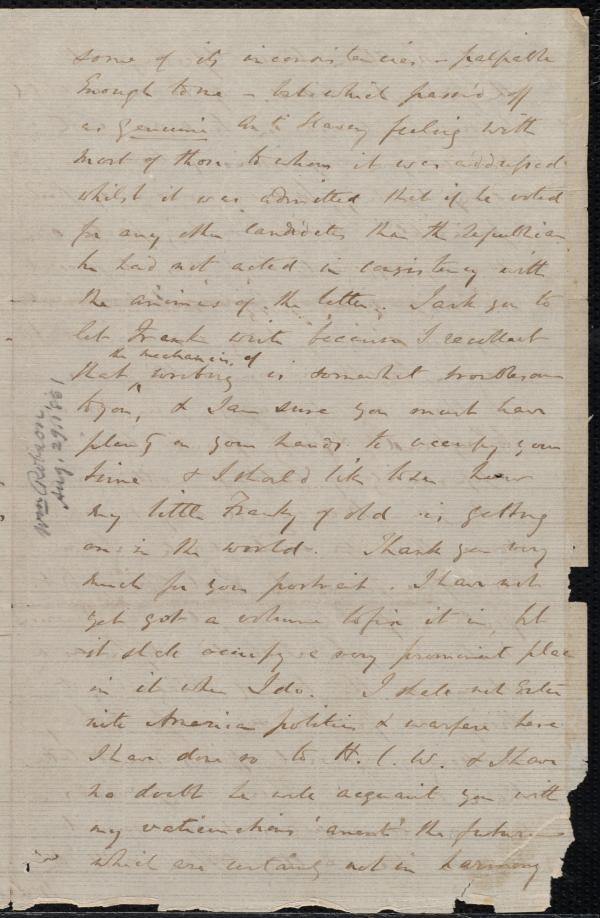 some of its inconsistencies - palpable
Enough to me - but which pass'd off
as genuine Anti Slavery feeling with
most of those to whom it was addressed
whilst it was admitted that if he voted
for any other candidates than the republican
he had not acted in consistency with
the animus of the letter. I ask you to
let Frank write because I recollect
the mechanism of
that writing is somewhat troublesome
to you, & I am sure you must have
plenty on your hands to occupy your
time & I should like to see how
my little Franky of old is getting
on in the world. Thank you very
much for your portrait. I have not
yet got a volume to fix it in, but
it shall occupy a very prominent place
in it when I do. I shall not enter
into American politics & warfare here
I have done so to H. C. W. & I have
no doubt he will acquaint you with
my vaticinations 'anent' the future
which are certainly not in harmony
Wm Robson
Aug. 29 1861